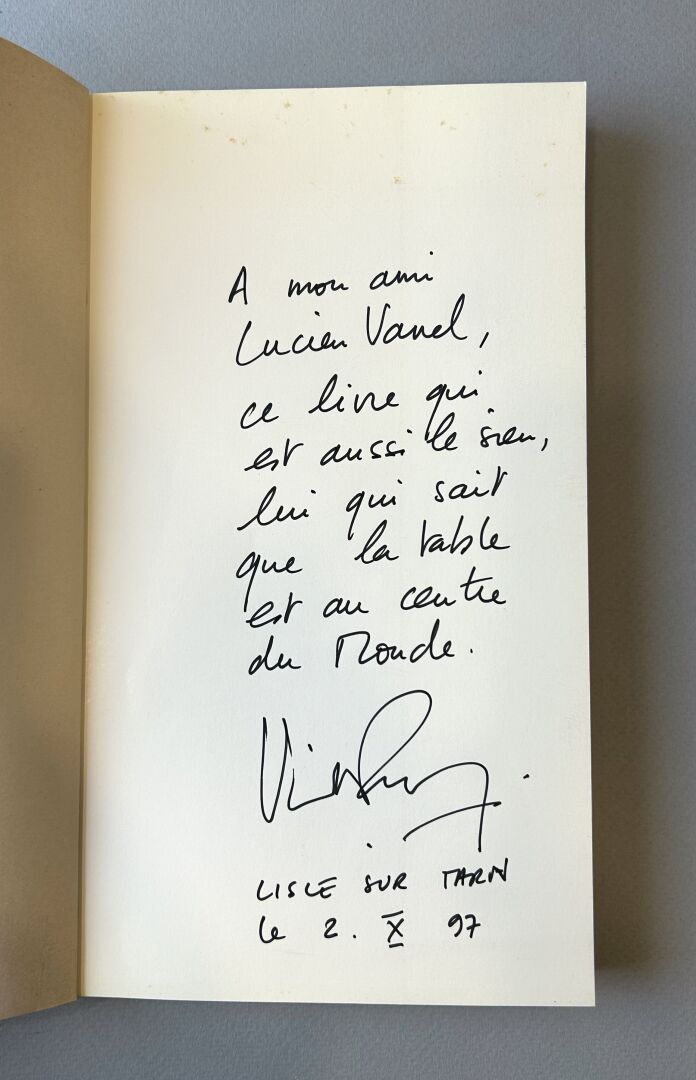 A mon ami
Lucien Vanel,
ce livre qui
est aussi le sien,
lui qui sait
que la table
est au centre
du Monde.
LISLE SUR TARN
le 2. X 97